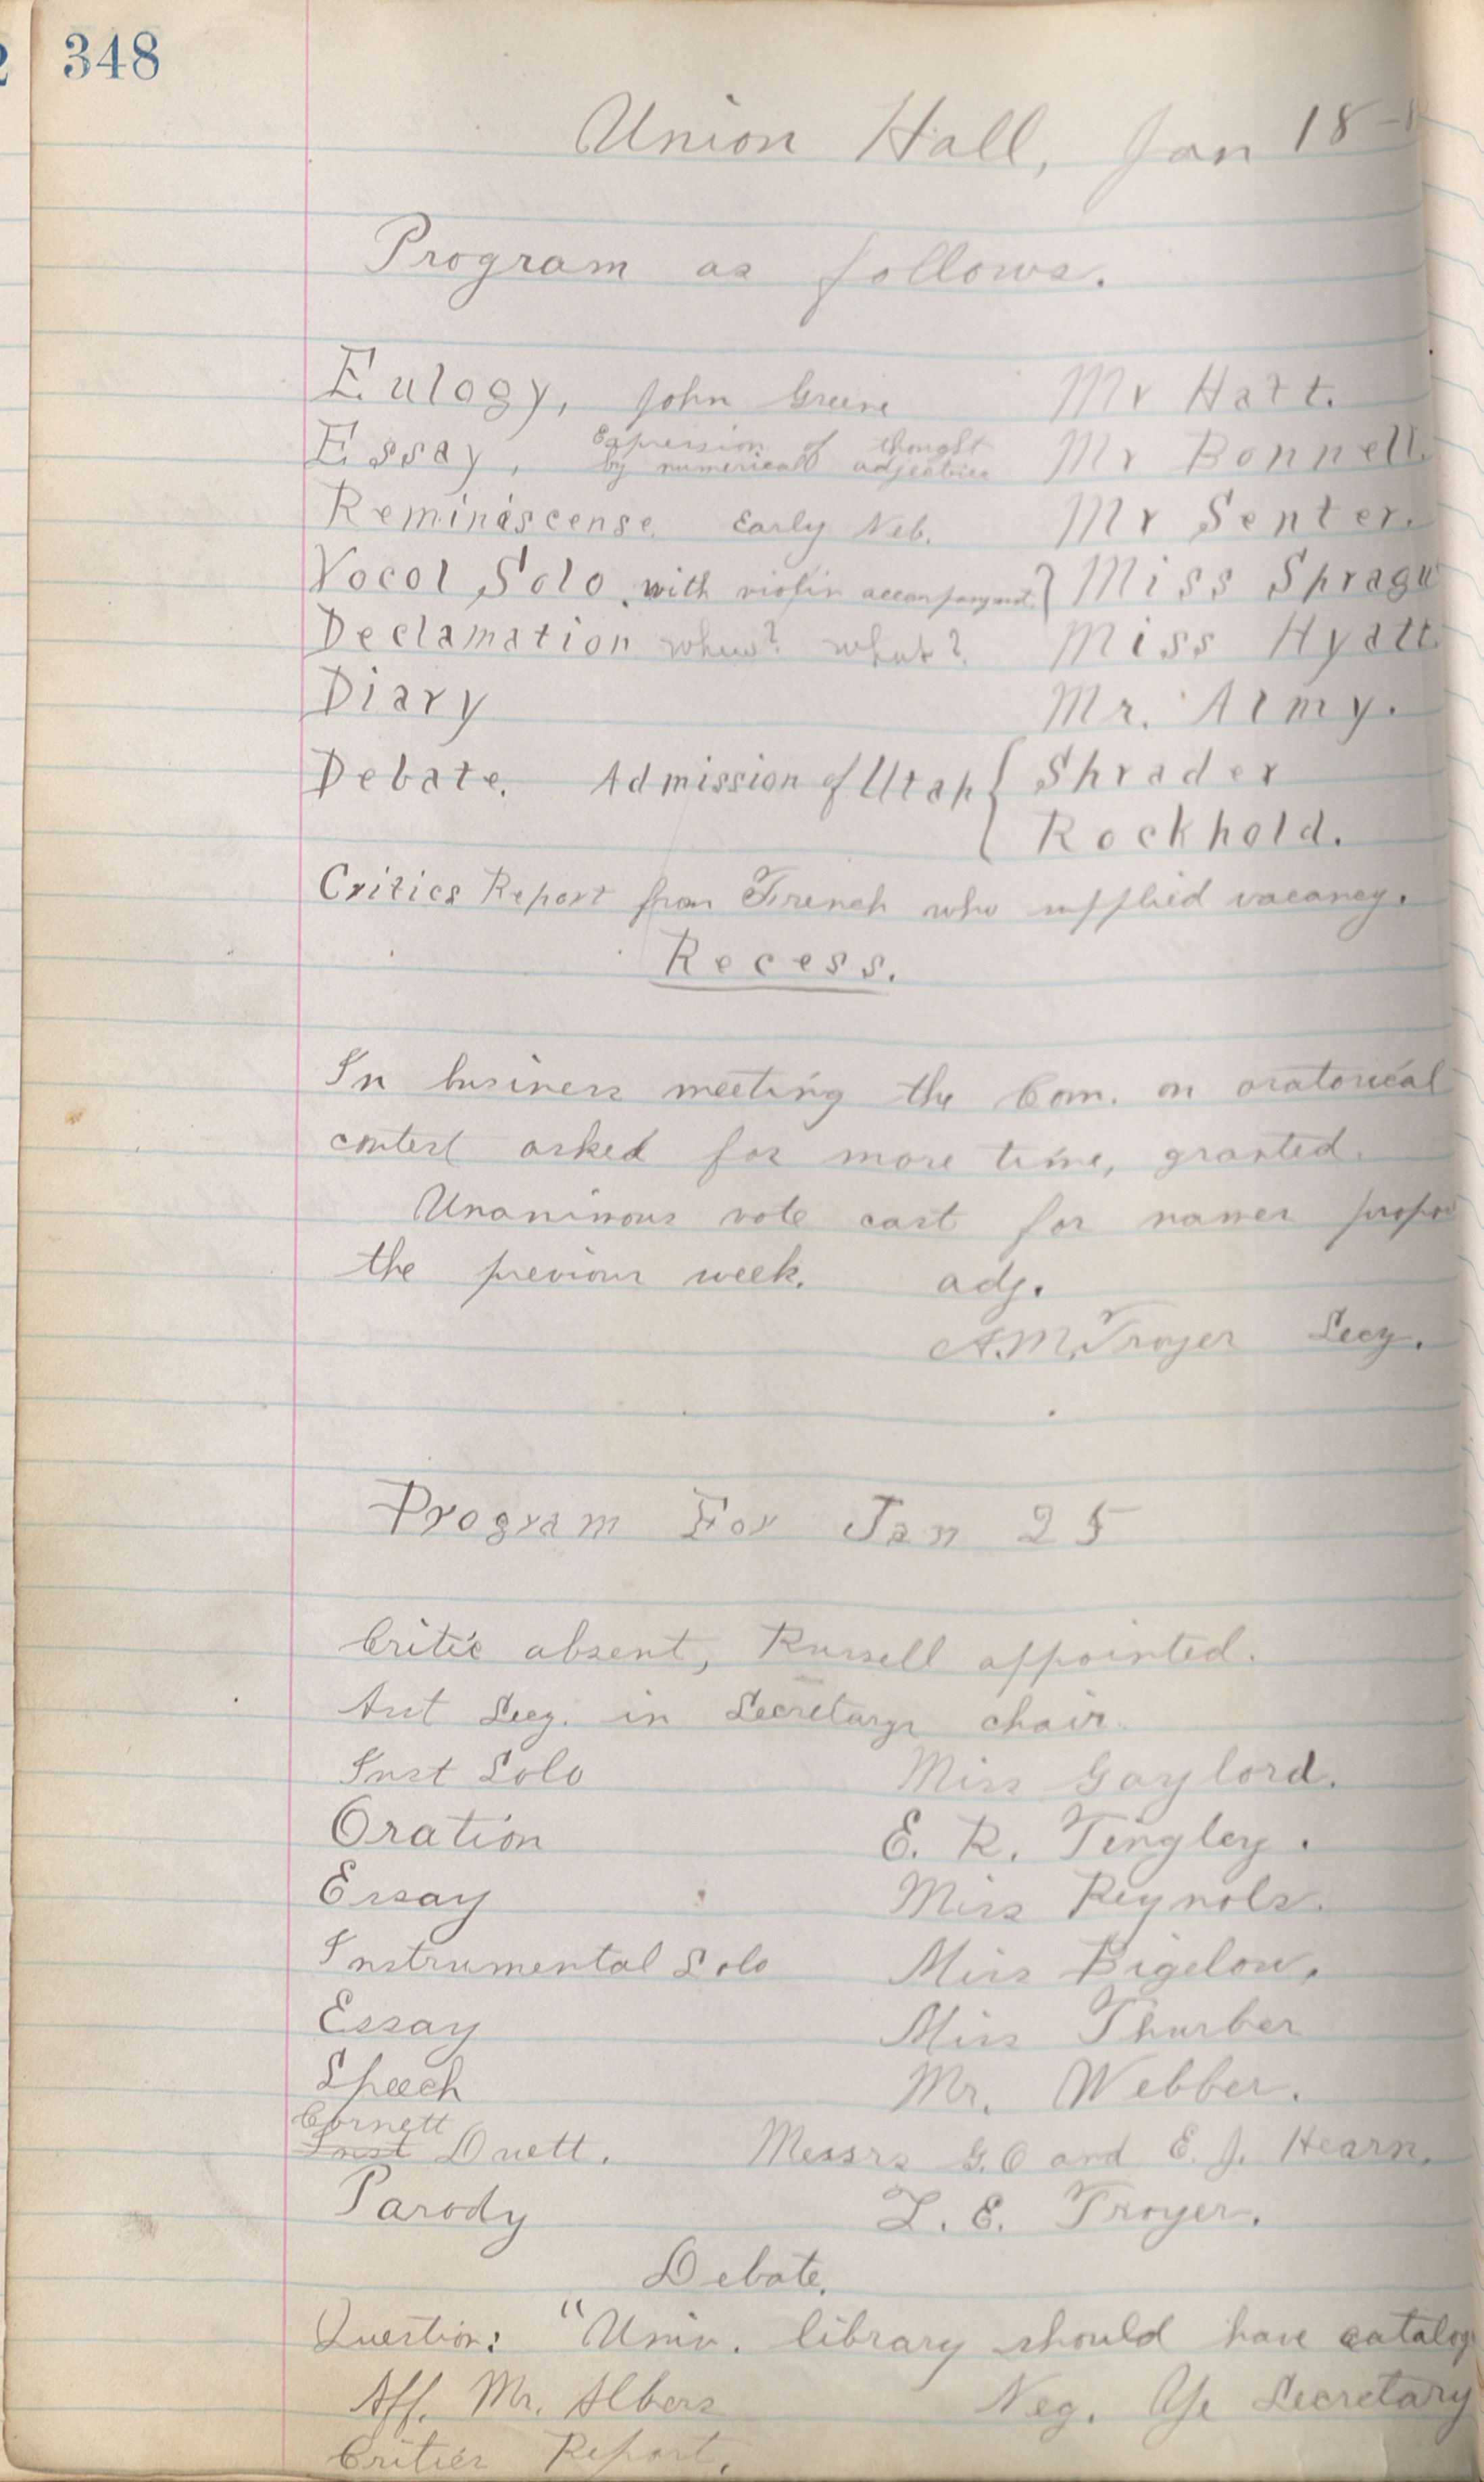 348
Union Hall, Jan 18-
Program as follows.
Eulogy, John Greene Mr Hatt.
Essay, Expression of thought by numerical adjectives Mr Bonnell.
Reminiscense. Early Neb. Mr Senter.
Vocal Solo, with violin } Miss Spragu
Declamation what? Miss Hyatt
Diary Mr. Almy.
Debate. Admission of Utah { Shrader
Rockhold.
Critics Report from French who supplied vacancy.
Recess.
In business meeting the Com. on oratorical
contest asked for more time, granted.
Unaninous vote cast for names propos
the previous week. adj.
A.M. Troyer Secy.
Program For Jan 25
Critic absent, Russell appointed.
Asst Secy. in Secretarys chair.
Inst Solo Miss Gaylord.
Oration E. R. Tingley.
Essay Miss Reynols.
Instrumental Solo Miss Bigelow.
Essay Miss Thurber
Speech Mr. Webber.
Cornett
Inst Duett. Messrs G.C and E. J. Hearn.
Parody L. E. Troyer.
Debate.
Question: "Univ. library should have catalog
Aff. Mr. Albers Neg. Ye Secretary
Critics Report.